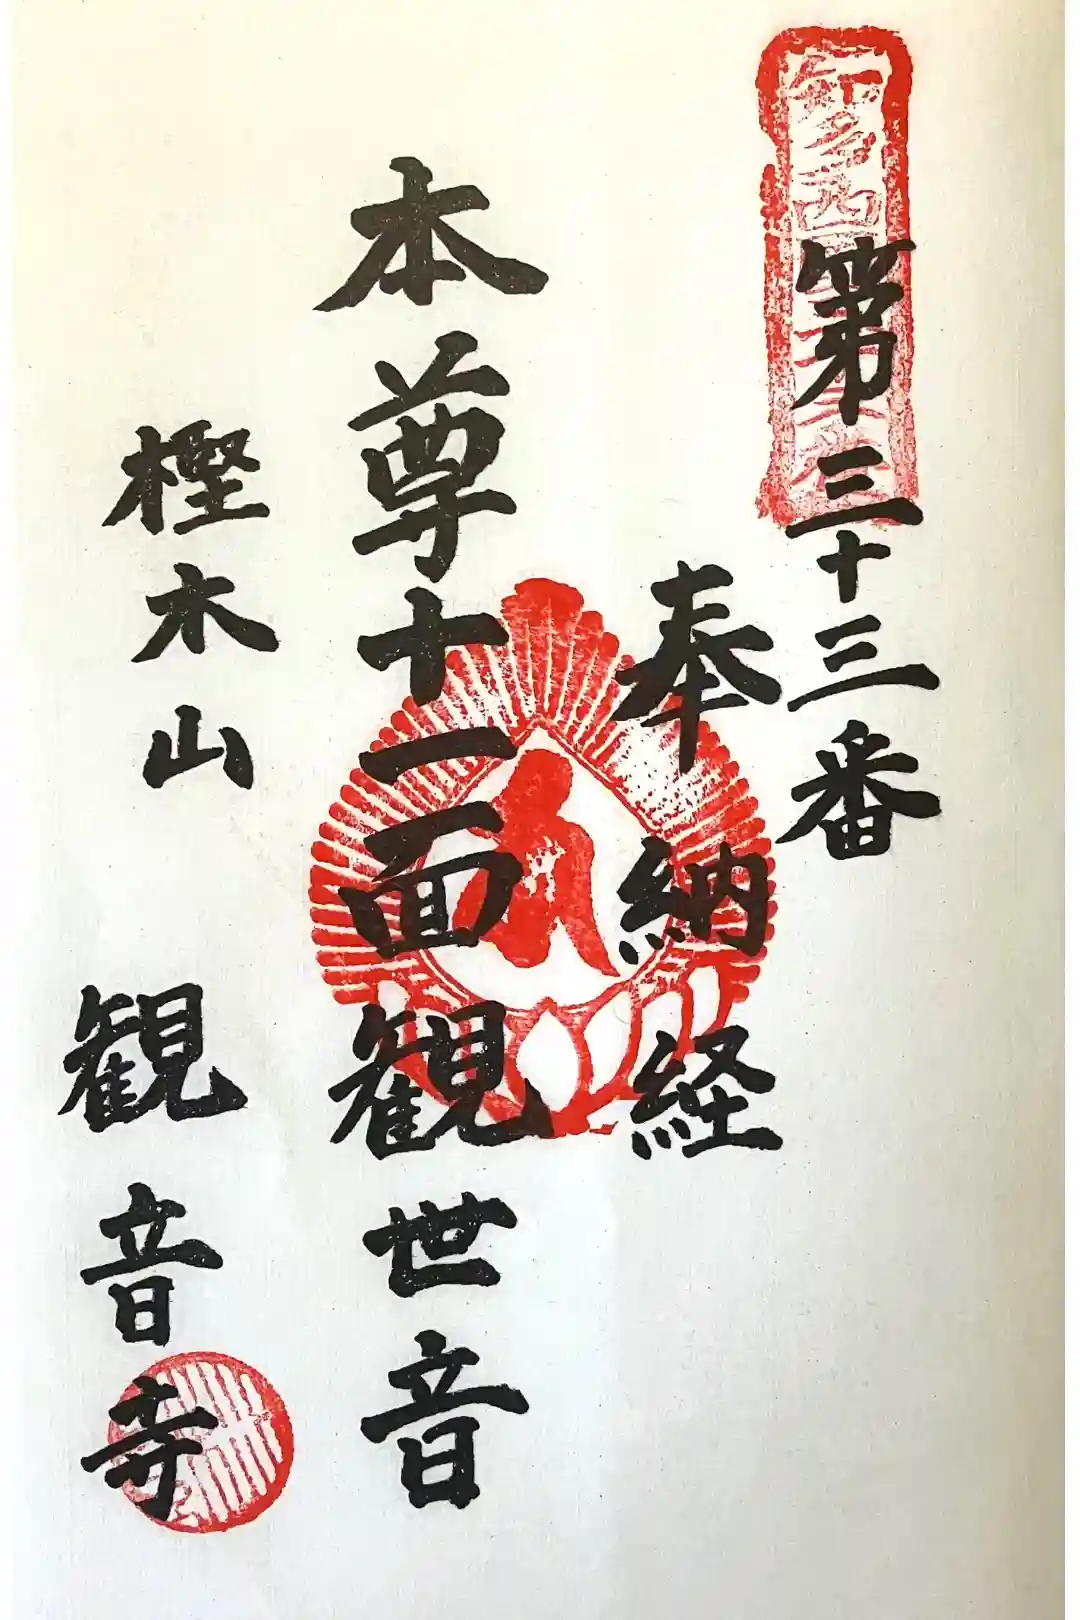 第三十三番
奉納経
本尊十一面観世音
樫木山 観音寺